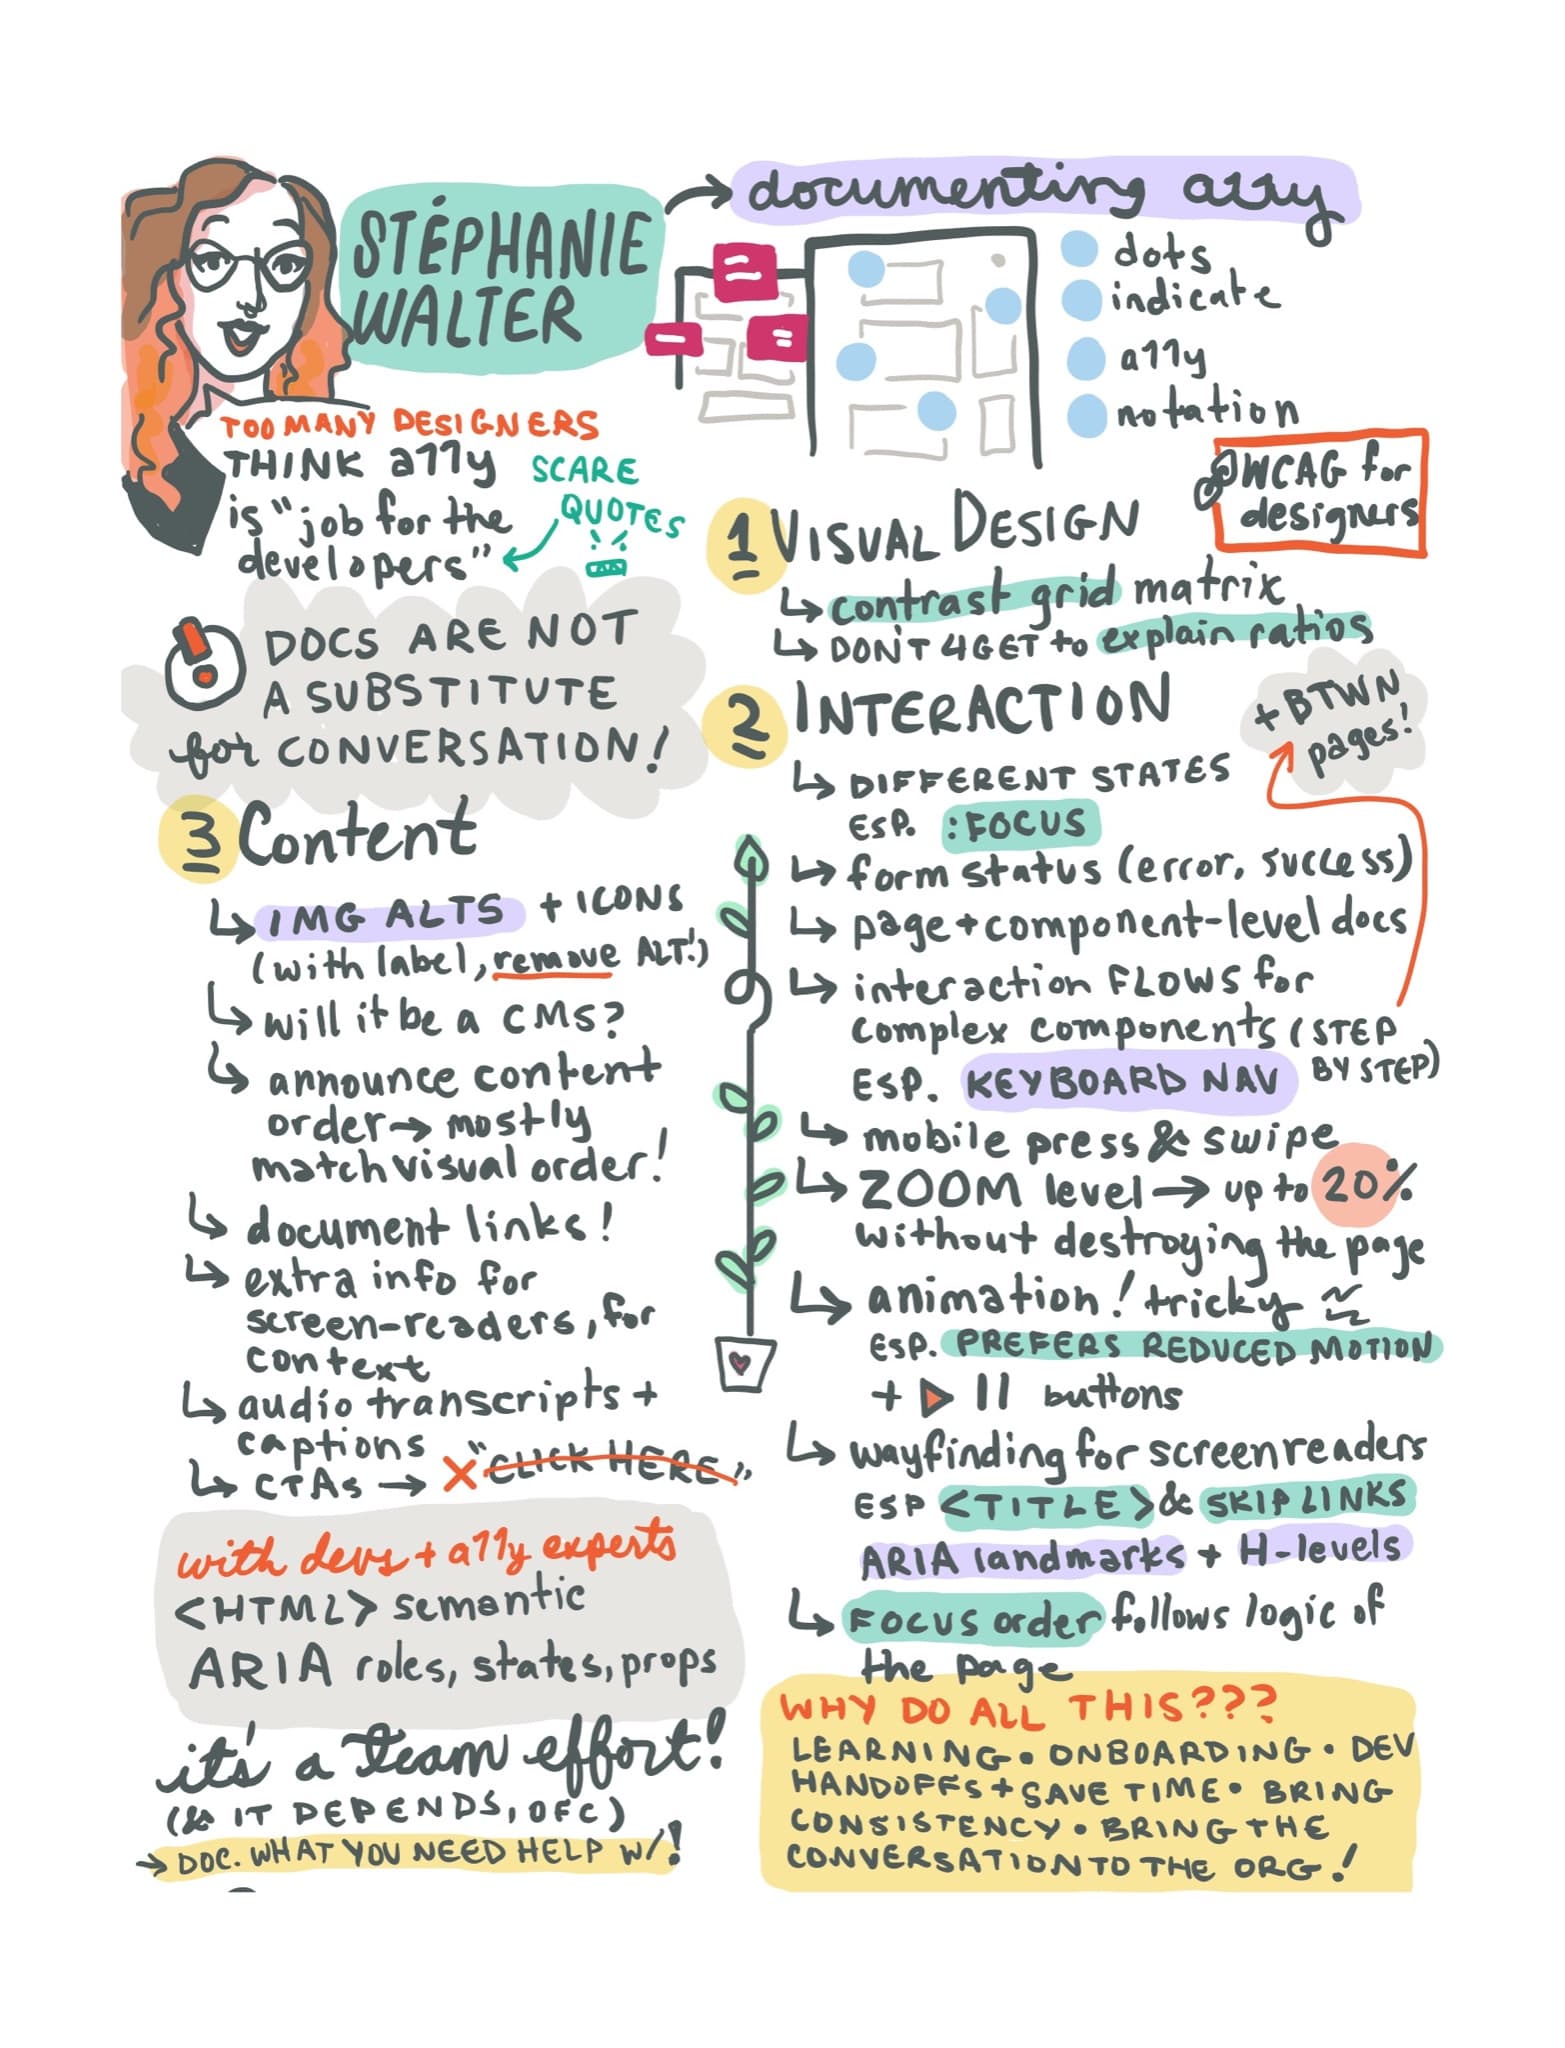 STÉPHANIE
WALTER
documenting a11y
dots
indicate
a11y
notation
TOO MANY DESIGNERS
THINK a11y
is "job for the
developers"
SCARE
QUOTES
@WCAG for
designers
DOCS ARE NOT
A SUBSTITUTE
for CONVERSATION!
1 VISUAL DESIGN
↳ contrast grid matrix
↳ DON'T 4GET to explain ratios
2 INTERACTION
+ BTWN
pages!
↳ DIFFERENT STATES
ESP. :FOCUS
↳ form status (error, success)
↳ page + component-level docs
↳ interaction FLOWS for
complex components (STEP
BY STEP)
ESP. KEYBOARD NAV
↳ mobile press & swipe
↳ ZOOM level → up to 20%
without destroying the page
↳ animation! tricky
ESP. PREFERS REDUCED MOTION
+ ▶ || buttons
↳ wayfinding for screenreaders
ESP <TITLE> & SKIP LINKS
ARIA landmarks + H-levels
↳ FOCUS order follows logic of
the page
3 Content
↳ IMG ALTS + ICONS
(with label, remove ALT!)
↳ will it be a CMS?
↳ announce content
order → mostly
match visual order!
↳ document links!
↳ extra info for
screen-readers, for
context
↳ audio transcripts +
captions
↳ CTAs → X "CLICK HERE"
with devs + a11y experts
<HTML> semantic
ARIA roles, states, props
it's a team effort!
(& IT DEPENDS, OFC)
→ DOC. WHAT YOU NEED HELP W/!
WHY DO ALL THIS???
LEARNING • ONBOARDING • DEV
HANDOFFS + SAVE TIME • BRING
CONSISTENCY • BRING THE
CONVERSATION TO THE ORG!